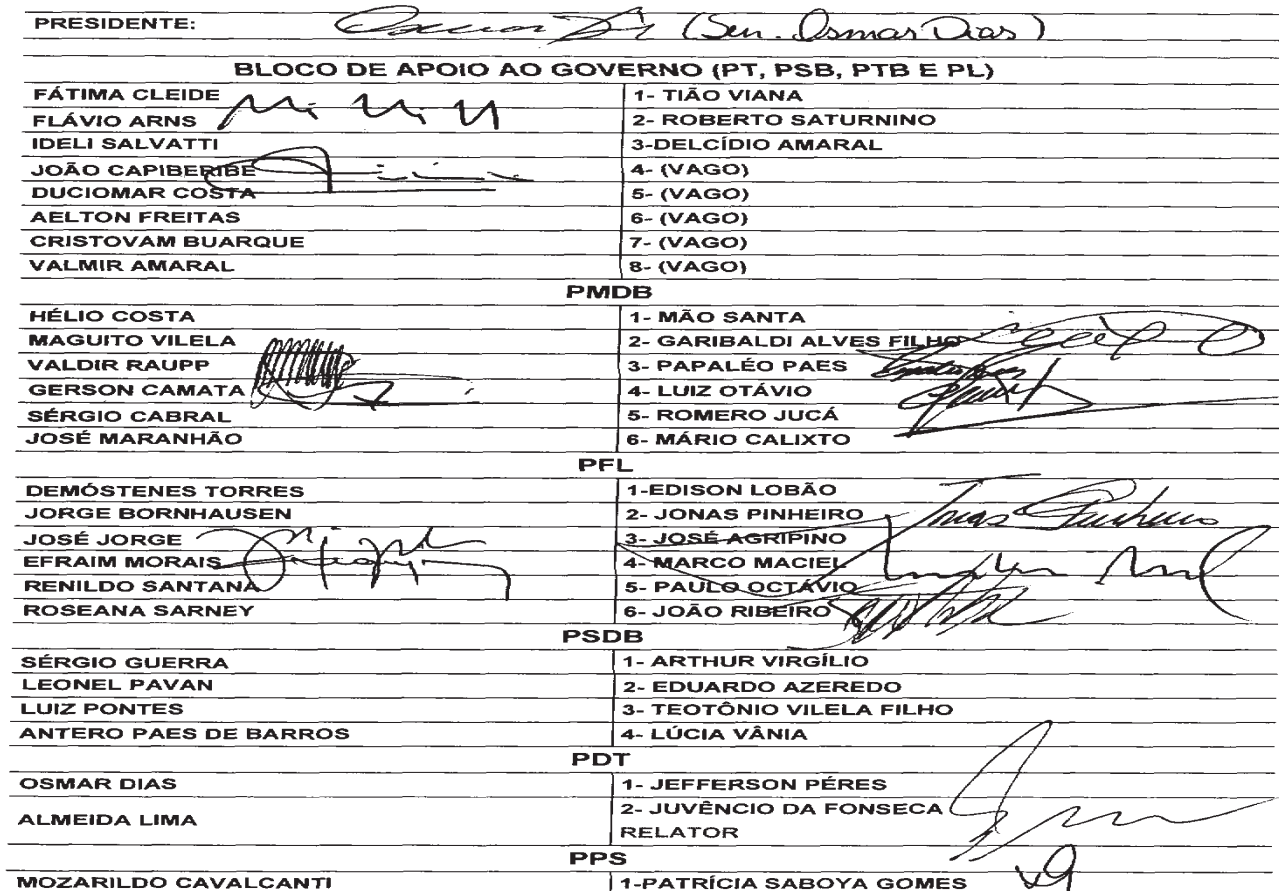 PRESIDENTE: (Sen. Osmar Dias)
BLOCO DE APOIO AO GOVERNO (PT, PSB, PTB E PL)
FÁTIMA CLEIDE 1- TIÃO VIANA
FLÁVIO ARNS 2- ROBERTO SATURNINO
IDELI SALVATTI 3-DELCÍDIO AMARAL
JOÃO CAPIBERIBE 4- (VAGO)
DUCIOMAR COSTA 5- (VAGO)
AELTON FREITAS 6- (VAGO)
CRISTOVAM BUARQUE 7- (VAGO)
VALMIR AMARAL 8- (VAGO)
PMDB
HÉLIO COSTA 1- MÃO SANTA
MAGUITO VILELA 2- GARIBALDI ALVES FILHO
VALDIR RAUPP 3- PAPALÉO PAES
GERSON CAMATA 4- LUIZ OTÁVIO
SÉRGIO CABRAL 5- ROMERO JUCÁ
JOSÉ MARANHÃO 6- MÁRIO CALIXTO
PFL
DEMÓSTENES TORRES 1-EDISON LOBÃO
JORGE BORNHAUSEN 2- JONAS PINHEIRO Jonas Pinheiro
JOSÉ JORGE 3- JOSÉ AGRIPINO
EFRAIM MORAIS 4- MARCO MACIEL
RENILDO SANTANA 5- PAULO OCTÁVIO
ROSEANA SARNEY 6- JOÃO RIBEIRO
PSDB
SÉRGIO GUERRA 1- ARTHUR VIRGÍLIO
LEONEL PAVAN 2- EDUARDO AZEREDO
LUIZ PONTES 3- TEOTÔNIO VILELA FILHO
ANTERO PAES DE BARROS 4- LÚCIA VÂNIA
PDT
OSMAR DIAS 1- JEFFERSON PÉRES
ALMEIDA LIMA 2- JUVÊNCIO DA FONSECA
RELATOR
PPS
MOZARILDO CAVALCANTI 1-PATRÍCIA SABOYA GOMES